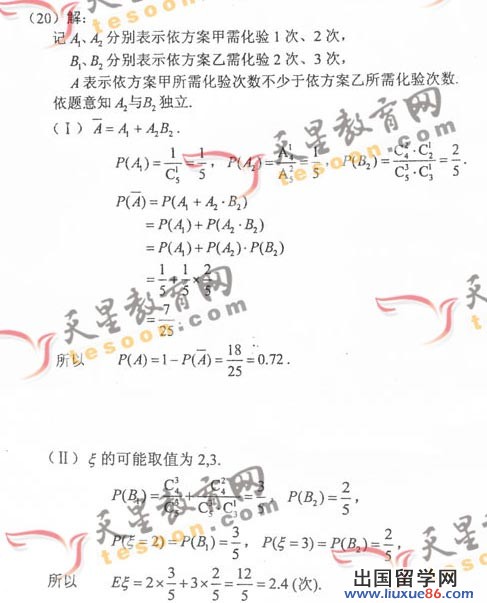 (20)解:
记 A₁、A₂ 分别表示依方案甲需化验 1 次、2 次，
B₁、B₂ 分别表示依方案乙需化验 2 次、3 次，
A 表示依方案甲所需化验次数不少于依方案乙所需化验次数.
依题意知 A₂ 与 B₂ 独立.
(Ⅰ) A̅ = A₁ + A₂B₂ .
P(A₁) = 1/C₅¹ = 1/5 , P(A₂) = A₄¹/A₅² = 1/5 , P(B₂) = C₄²·C₂¹/C₅³·C₃¹ = 2/5 .
P(A̅) = P(A₁ + A₂·B₂)
= P(A₁) + P(A₂·B₂)
= P(A₁) + P(A₂)·P(B₂)
= 1/5 + 1/5 × 2/5
= 7/25 .
所以 P(A) = 1 − P(A̅) = 18/25 = 0.72 .
(Ⅱ) ξ 的可能取值为 2,3.
P(B₁) = C₄³/C₅³ + C₄²/C₅³·C₃¹ = 3/5 , P(B₂) = 2/5 ,
P(ξ = 2) = P(B₁) = 3/5 , P(ξ = 3) = P(B₂) = 2/5 ,
所以 Eξ = 2 × 3/5 + 3 × 2/5 = 12/5 = 2.4 (次).
天星教育网
tesoon.com
出国留学网
www.liuxue86.com